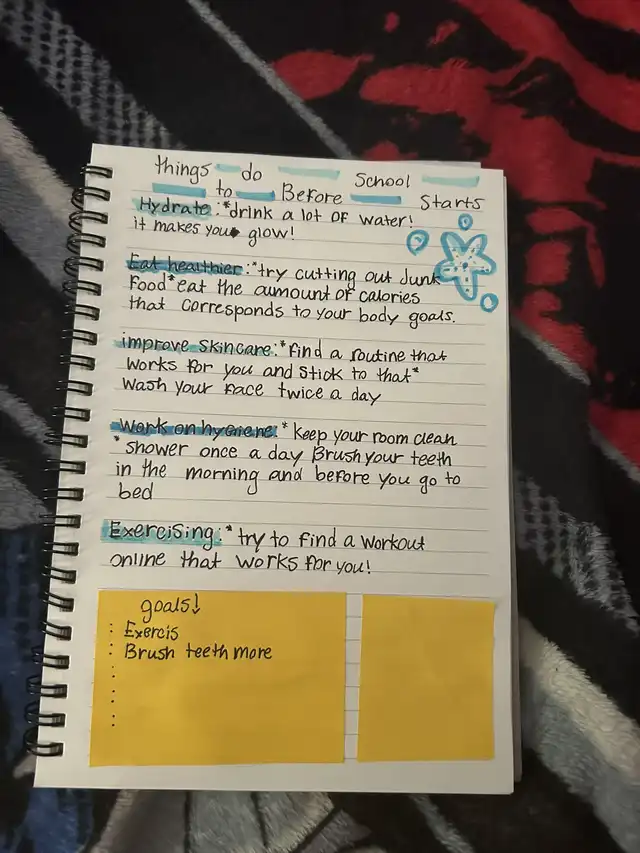 things to do Before School Starts
Hydrate: *drink a lot of water!
it makes you glow!
Eat healthier: *try cutting out Junk
Food *eat the aumount of calories
that corresponds to your body goals.
improve skincare: *find a routine that
works for you and stick to that*
Wash your face twice a day
Work on hygiene: * Keep your room clean
* shower once a day Brush your teeth
in the morning and before you go to
bed
Exercising: * try to find a workout
online that works for you!
goals↓
: Exercis
: Brush teeth more